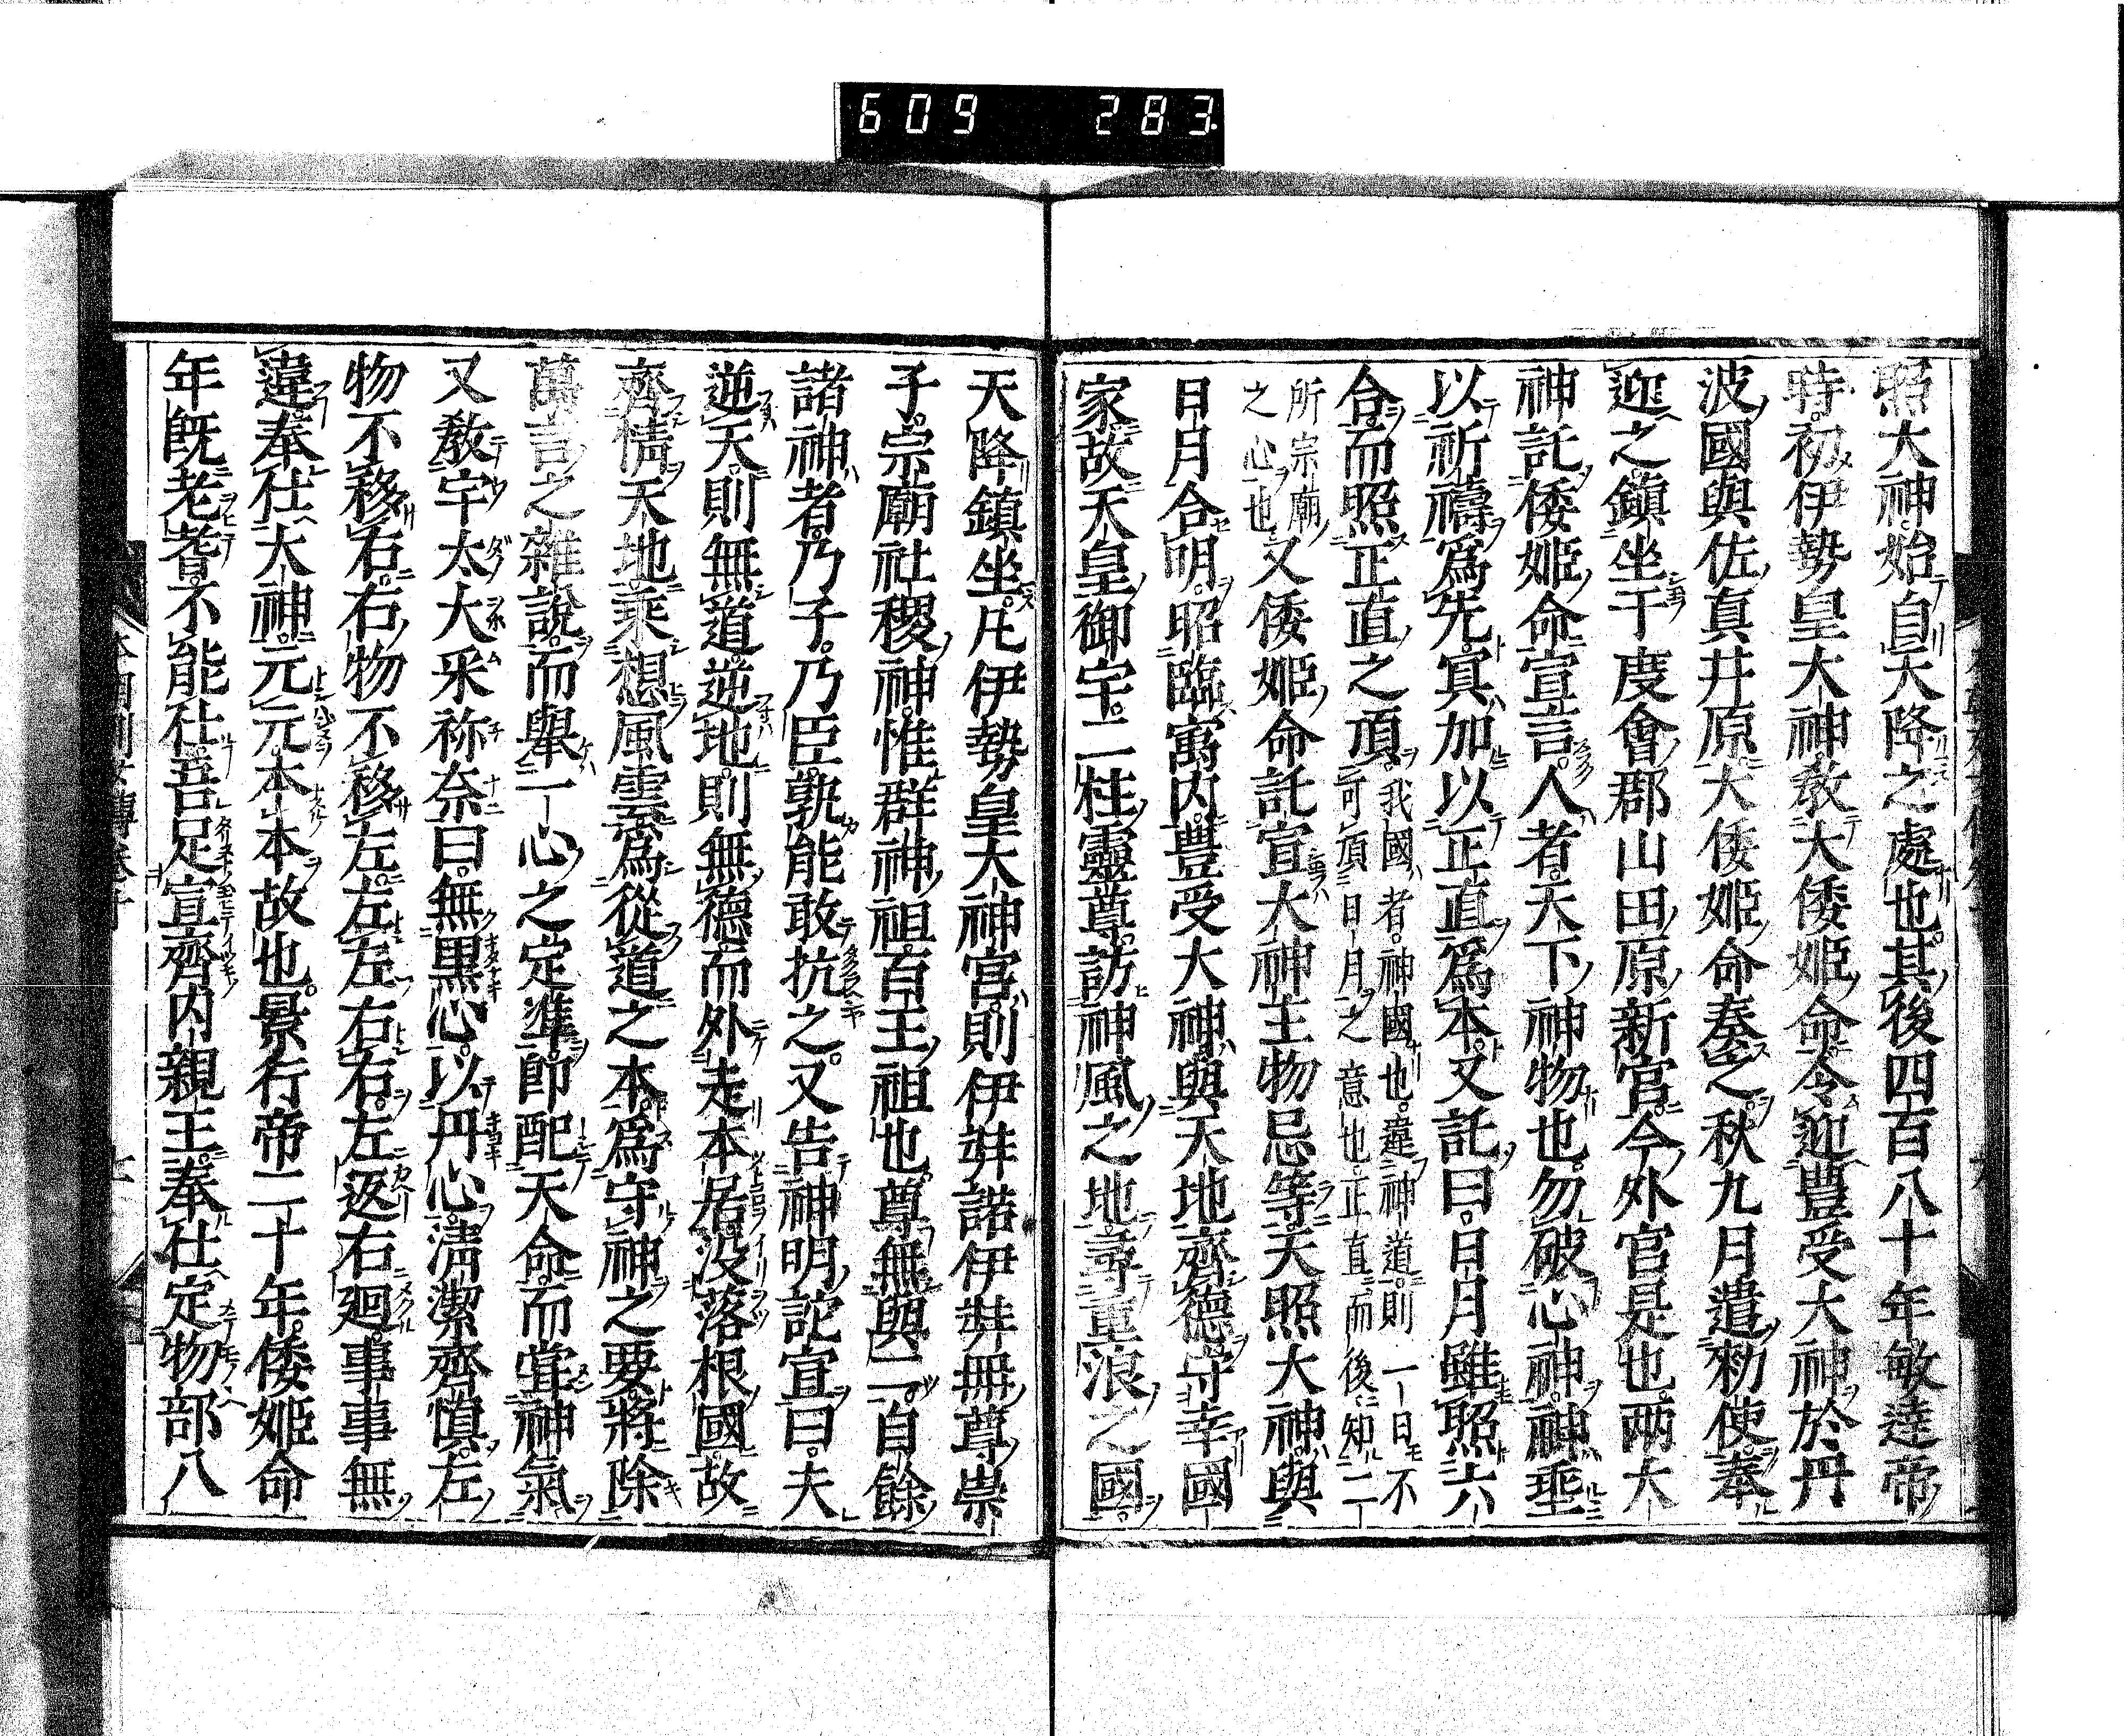 609 283
照大神始自天降之處也其後四百八十年敏達帝
時初伊勢皇大神教大倭姬命令迎豊受大神於丹
波國與佐真井原大倭姬命奏之秋九月遣勑使奉
迎之鎮坐于度會郡山田原新宮今外宮是也兩大
神託倭姬命宣言人者天下神物也勿破心神神垂
以祈禱為先冥加以正直為本又託曰日月雖照六
合而照正直之頂我國者神國也違神道則一日不
可頂日月之意也正直而後知二
所宗廟
之心也又倭姬命託宣大神主物忌等天照大神與
日月合明昭臨寓内豊受大神與天地齊德守幸國
家故天皇御宇二柱靈尊訪神風之地尋重浪之國
天降鎮坐凡伊勢皇大神宮則伊弉諾伊弉冊尊崇
子宗廟社稷神惟群神祖百王祖也尊無與二自餘
諸神者乃子乃臣孰能敢抗之又告神明詫宣曰夫
逆天則無道逆地則無德而外走本居没落根國故
齊情天地乘想風雲為從道之本為守神之要將除
萬言之雜說而舉一心之定準即配天命而嘗神氣
又教宇太大采祢奈曰無黒心以丹心淸潔齊慎左
物不移右右物不移左左左右右左返右廻事事無
違奉仕大神元元本本故也景行帝二十年倭姬命
年既老耆不能仕吾足宣齊内親王奉仕定物部八